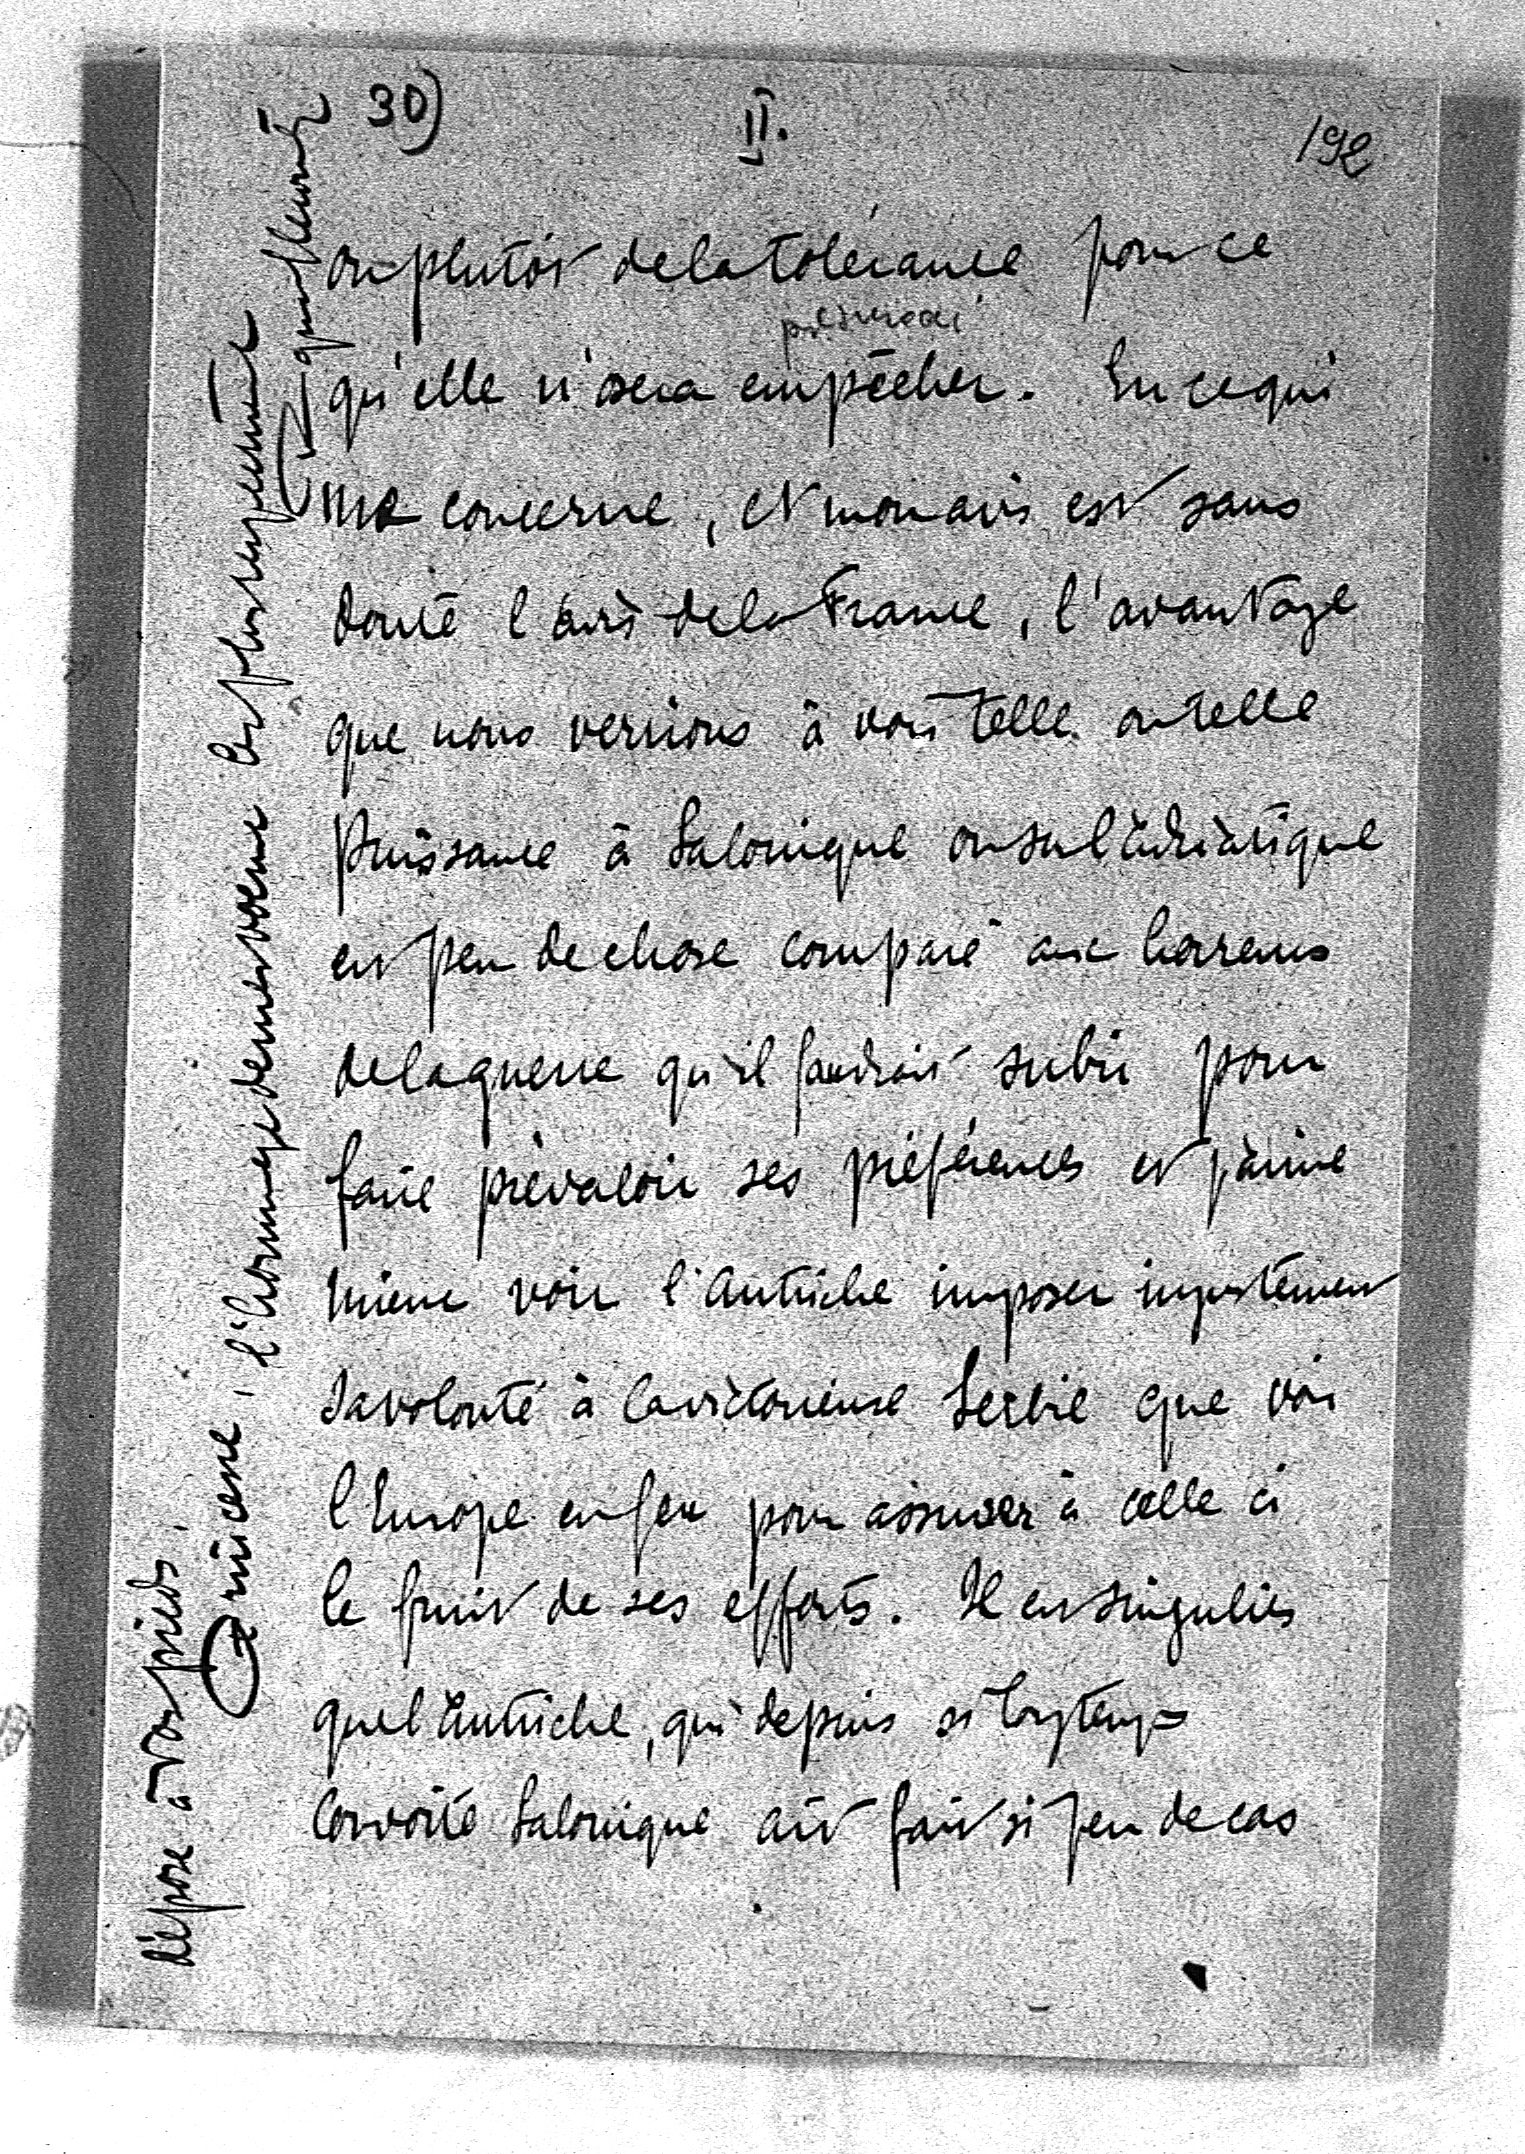 30)
II.
192
ou plutôt de la tolérance pour ce
qu'elle n'osera empêcher. En ce qui
me concerne, et mon avis est sans
doute l'avis de la France, l'avantage
que nous verrions à voir telle ou telle
puissance à Salonique ou sur l'adriatique
est peu de chose comparé aux horreurs
de la guerre qu'il faudrait subir pour
faire prévaloir ses préférences et j'aime
mieux voir l'Autriche imposer injustement
sa volonté à la victorieuse Serbie que voir
l'Europe en feu pour assurer à celle ci
le fruit de ses efforts. Il est singulier
que l'Autriche, qui depuis si longtemps
convoite Salonique ait fait si peu de cas
dépose à Vos pieds.
Princesse, l'hommage de mes vœux les plus respectueux